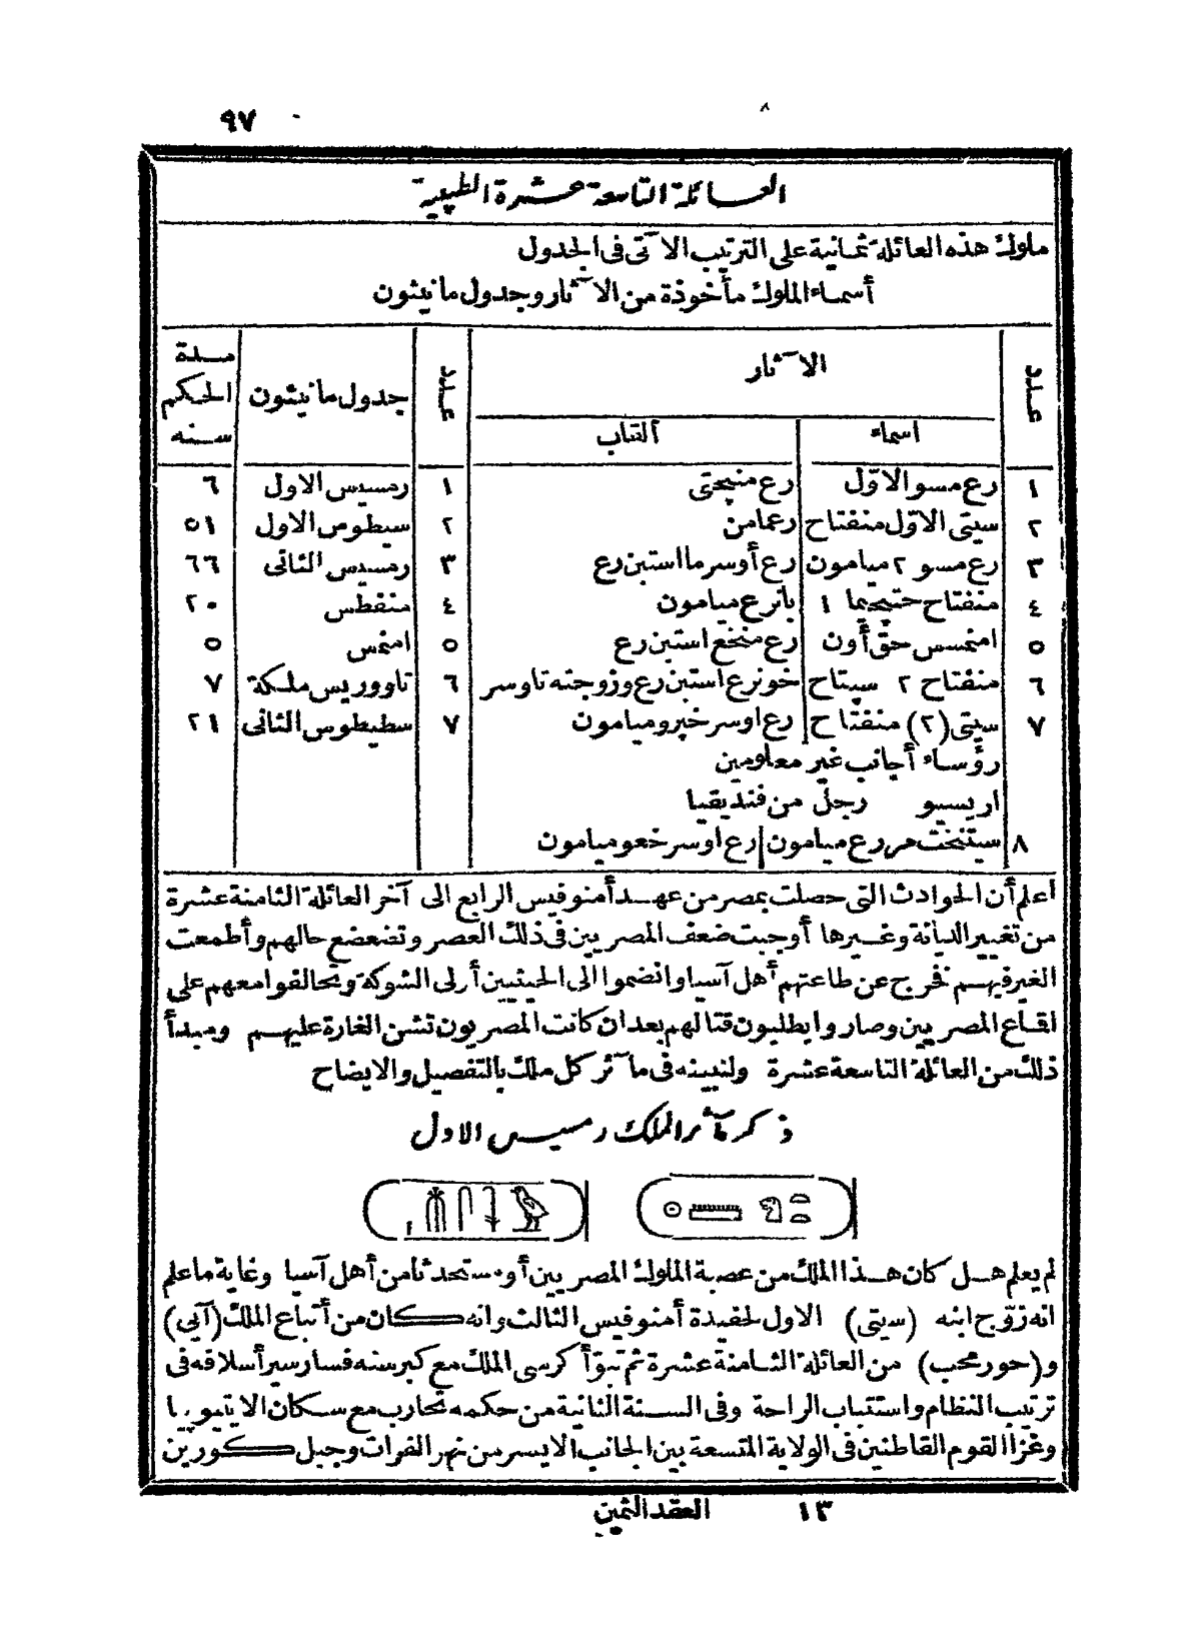 ٩٧
العائلة التاسعة عشرة الطيبية
ملوك هذه العائلة ثمانية على الترتيب الآتى فى الجدول
أسماء الملوك مأخوذة من الآثار وجدول مانيثون
عدد الآثار عدد جدول مانيثون مدة الحكم سنه
اسماء ألقاب
١ رع مسو الاوّل رع منپحتى ١ رمسيس الاول ٦
٢ سيتى الاوّل منفتاح رعمامن ٢ سيطوس الاول ٥١
٣ رع مسو ٢ ميامون رع أوسرما استبن رع ٣ رمسيس الثانى ٦٦
٤ منفتاح حتپحيما ١ بانرع ميامون ٤ منفطس ٢٠
٥ امنمسس حق أون رع منخع استبن رع ٥ امنمس ٥
٦ منفتاح ٢ سپتاح خونرع استبن رع وزوجته تاوسر ٦ تاووريس ملكة ٧
٧ سيتى (٢) منفتاح رع اوسر خپرو ميامون ٧ سطيطوس الثانى ٢١
رؤساء أجانب غير معلومين
اريسيو رجل من فنديقيا
٨ سيتنخت مر رع ميامون رع اوسر خعو ميامون
اعلم أن الحوادث التى حصلت بمصر من عهد أمنوفيس الرابع الى آخر العائلة الثامنة عشرة
من تغيير الديانة وغيرها أوجبت ضعف المصريين فى ذلك العصر وتضعضع حالهم وأطمعت
الغير فيهم فخرج عن طاعتهم أهل آسيا وانضموا الى الحيثيين أرلى الشوكة وتحالفوا معهم على
لقاع المصريين وصاروا يطلبون قتالهم بعد ان كانت المصريون تشن الغارة عليهم ومبدأ
ذلك من العائلة التاسعة عشرة ولنبينه فى مآثر كل ملك بالتفصيل والايضاح
ذكر مآثر الملك رمسيس الاول
لم يعلم هل كان هذا الملك من عصبة الملوك المصريين أو مستحدثا من أهل آسيا وغاية ما علم
انه زوّج ابنه (سيتى) الاول لحفيدة أمنوفيس الثالث وانه كان من أتباع الملك (آيي)
و(حور محب) من العائلة الثامنة عشرة ثم تبوّأ كرسى الملك مع كبر سنه فسار سير أسلافه فى
ترتيب النظام واستتباب الراحة وفى السنة الثانية من حكمه تحارب مع سكان الايتيوبيا
وغزا القوم القاطنين فى الولاية المتسعة بين الجانب الايسر من نهر الفرات وجبل كورين
١٣ العقد الثمين